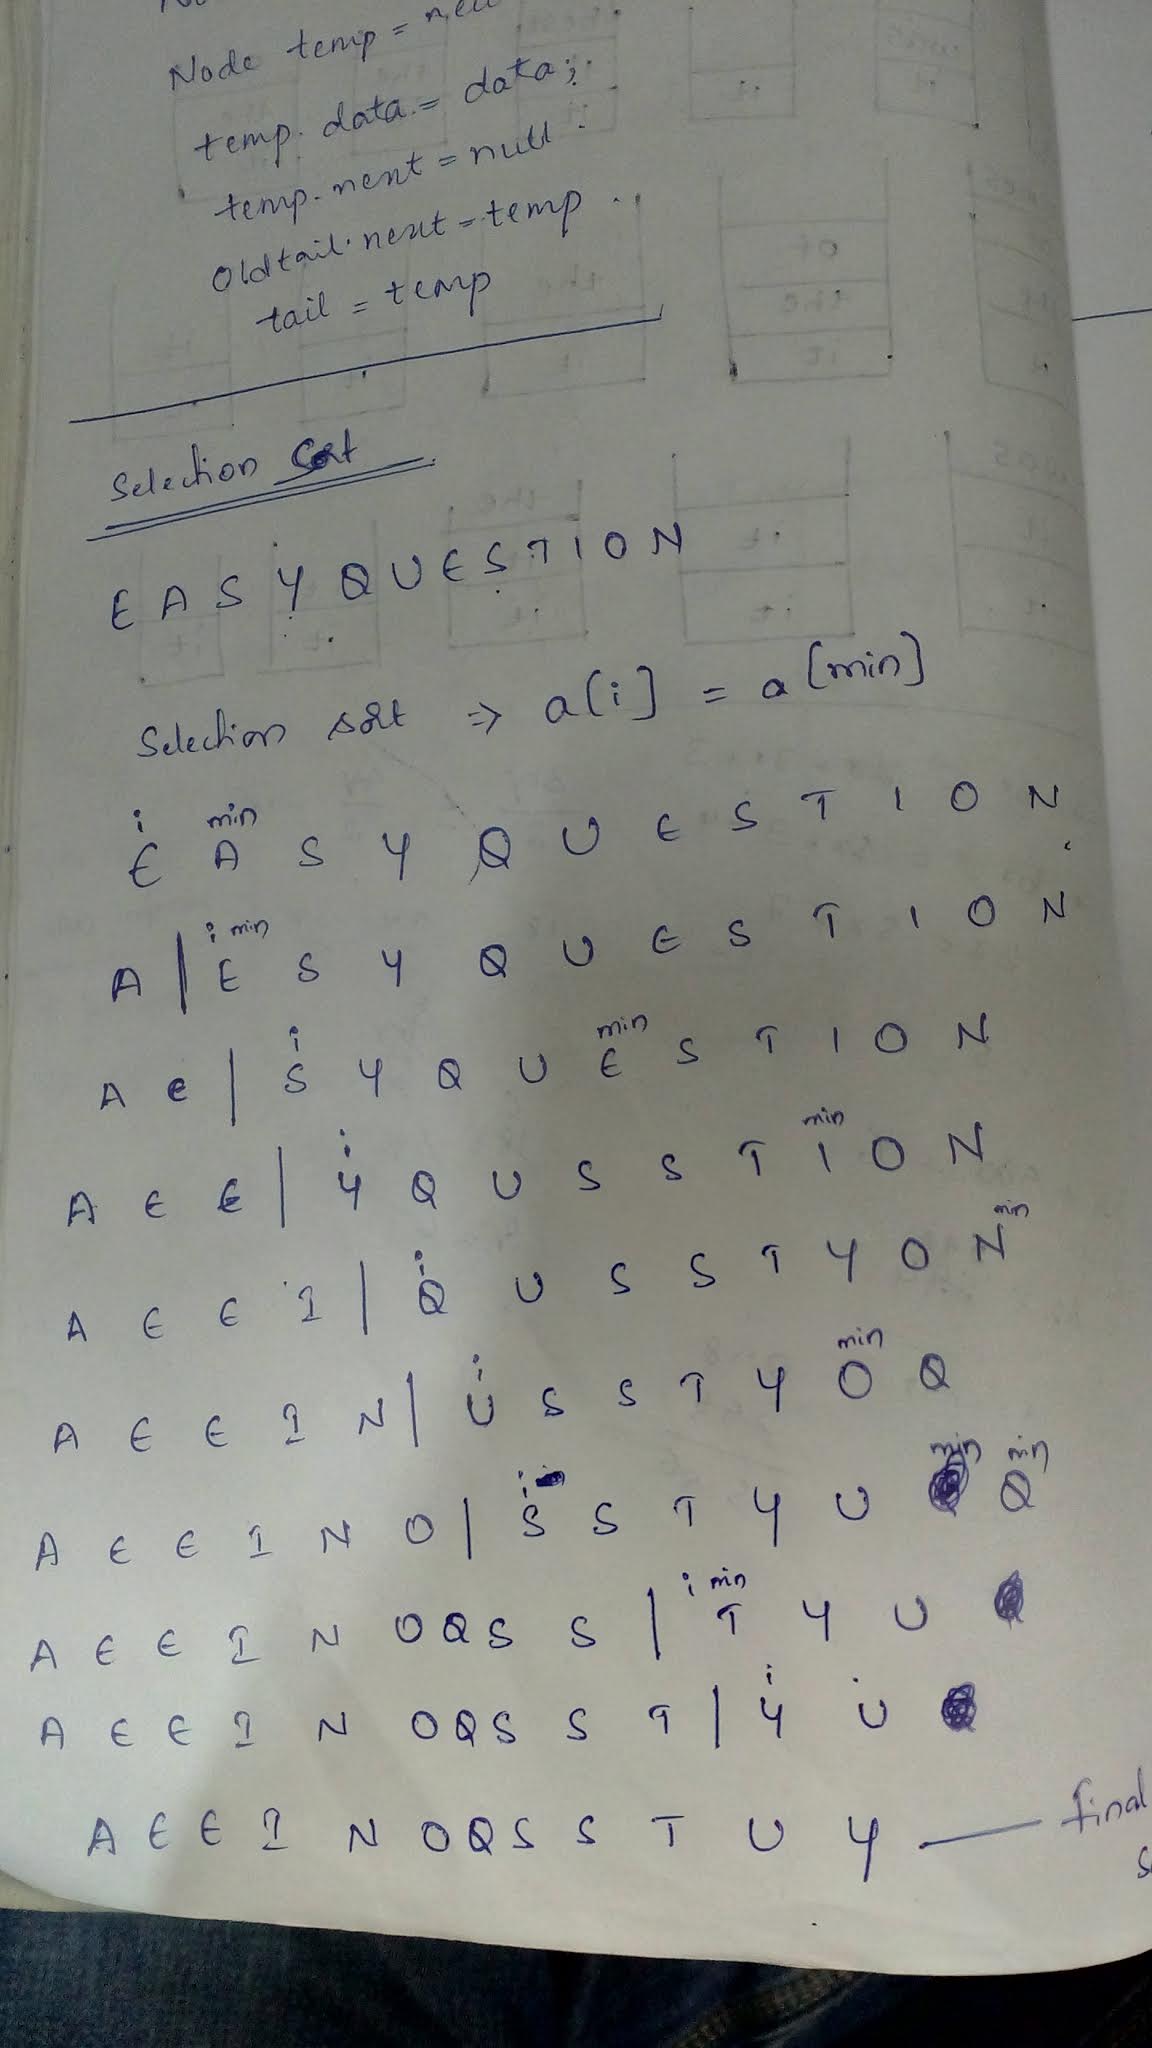 Node temp = new
temp.data = data;
temp.next = null.
Oldtail.next = temp.
tail = temp
Selection Sort
E A S Y Q U E S T I O N
Selection sort ⇒ a[i] = a[min]
i min
E A S Y Q U E S T I O N
i min
A | E S Y Q U E S T I O N
i min
A E | S Y Q U E S T I O N
i min
A E E | Y Q U S S T I O N
i min
A E E I | Q U S S T Y O N
i min
A E E I N | U S S T Y O Q
i min min
A E E I N O | S S T Y U Q
i min
A E E I N O Q S S | T Y U
i
A E E I N O Q S S T | Y U
A E E I N O Q S S T U Y — final